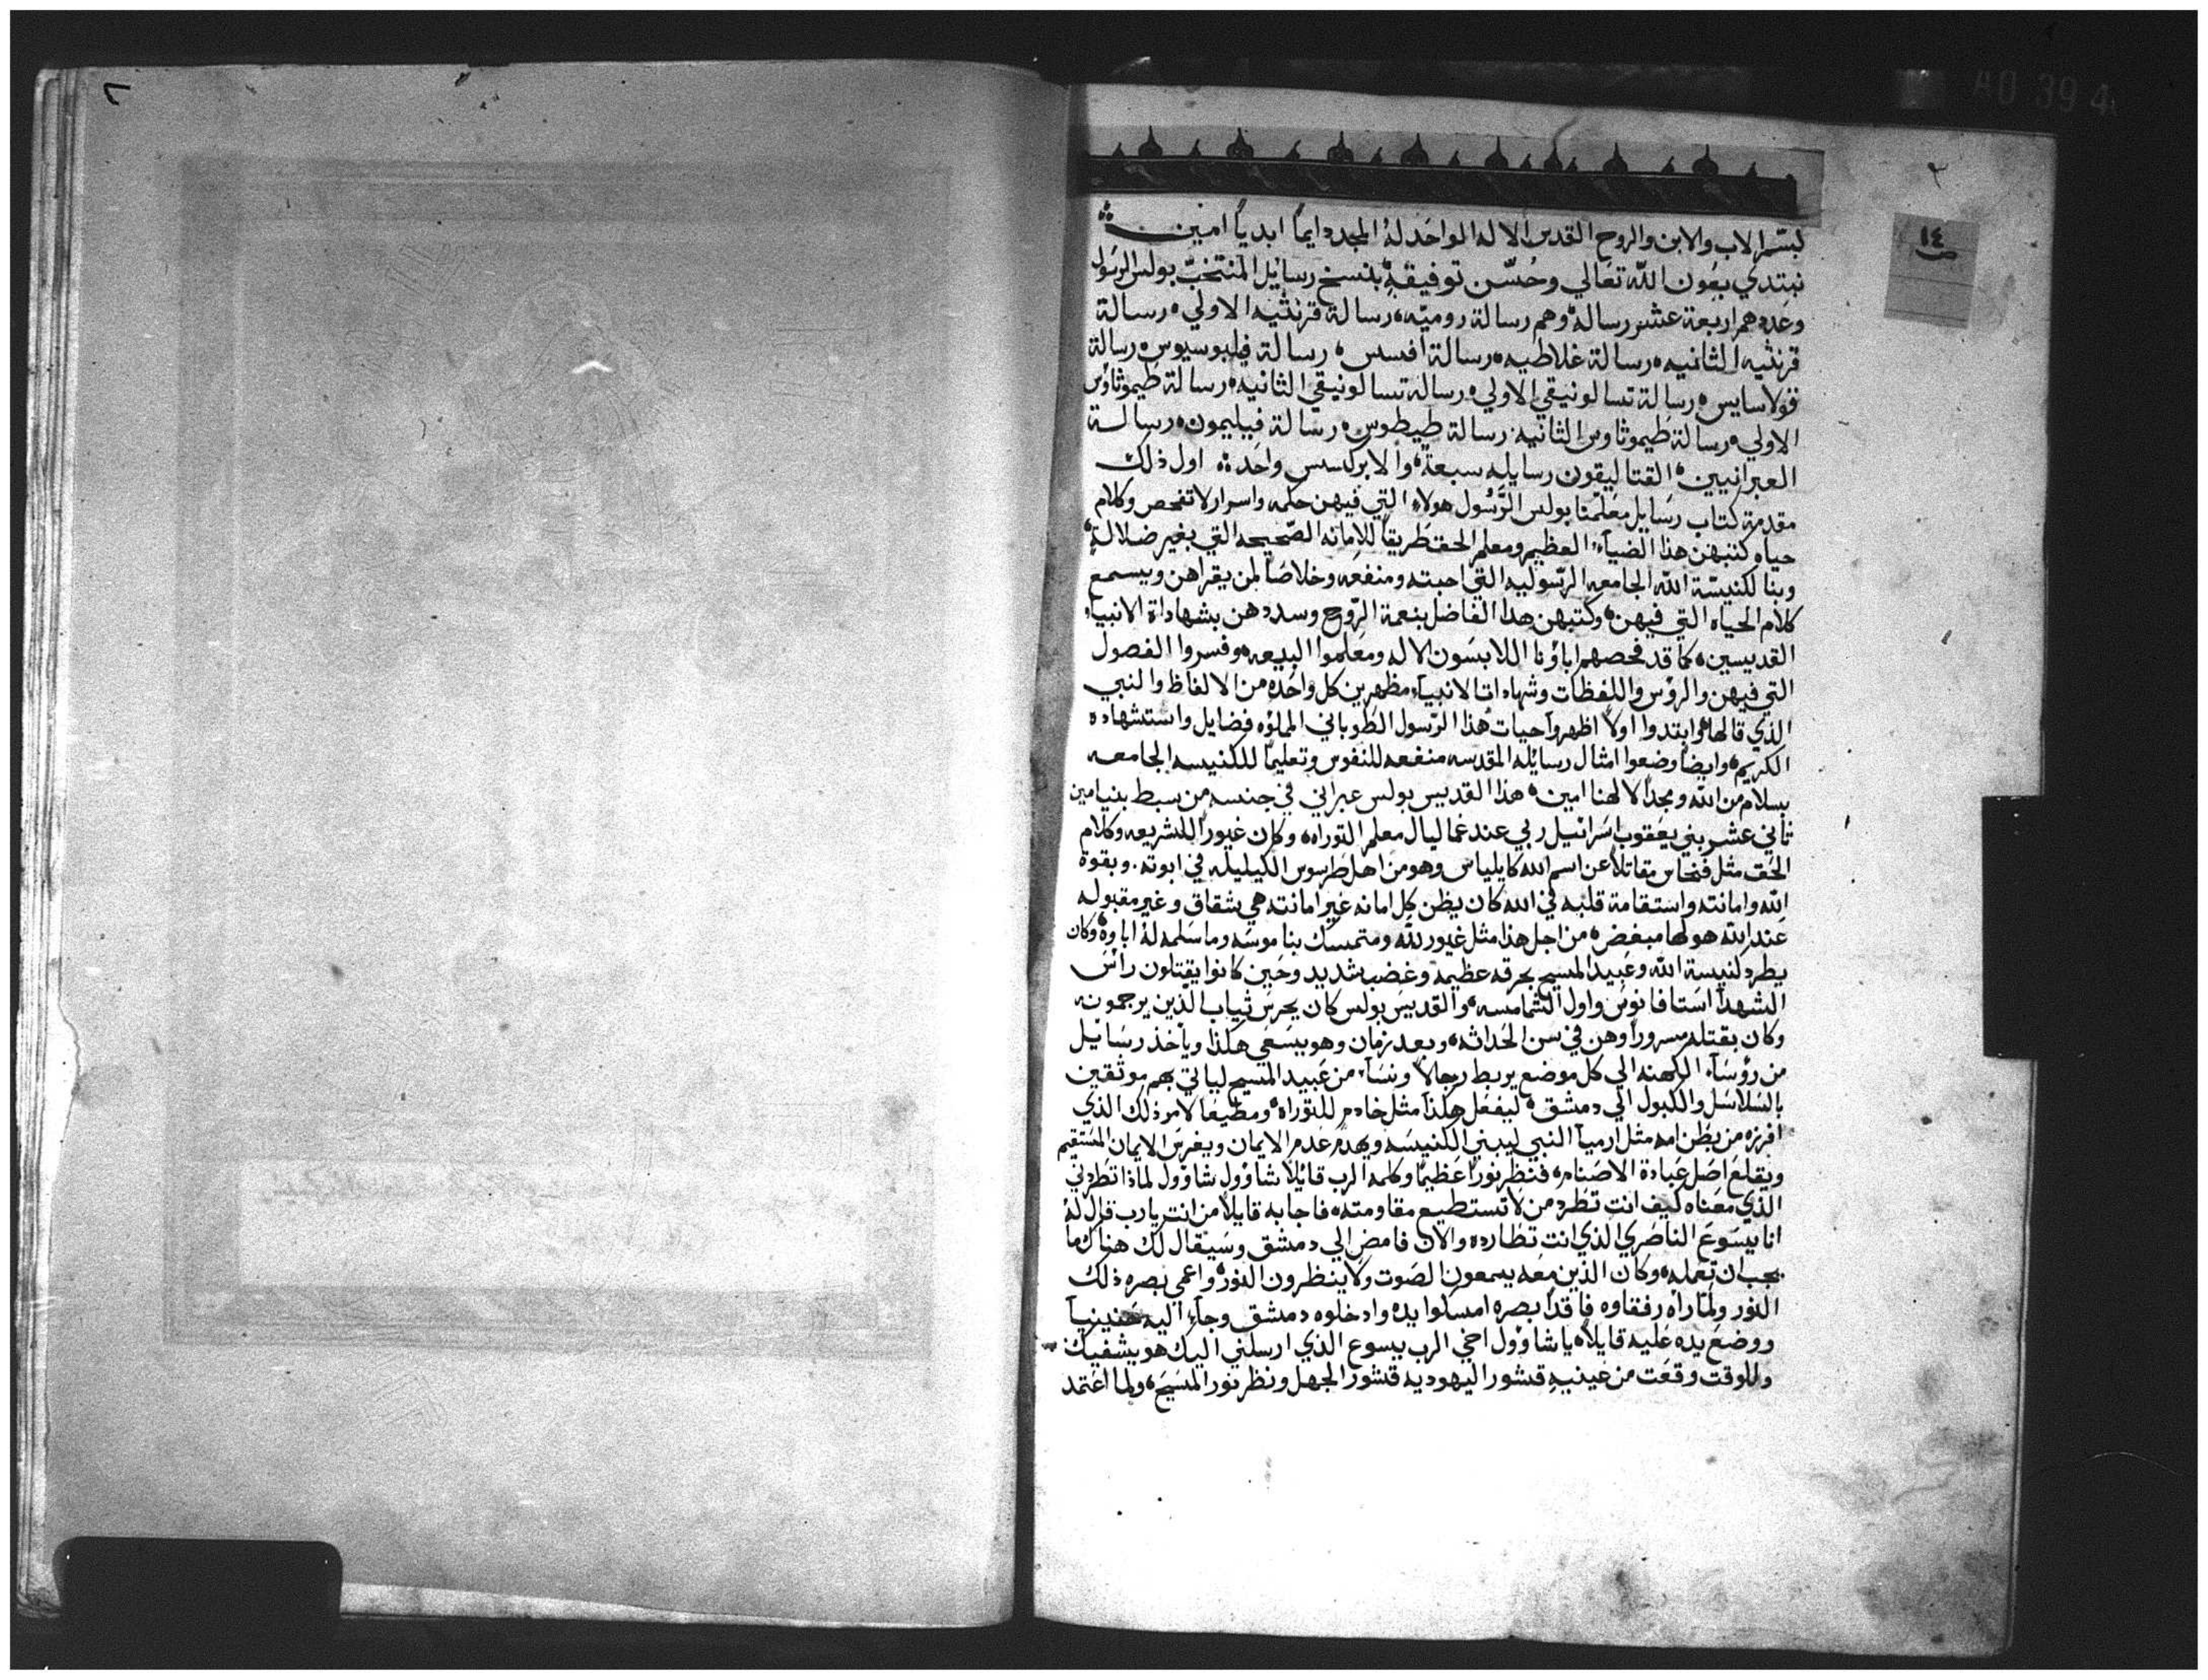 بسم الاب والابن والروح القدس الاله الواحد له المجد دايماً ابدياً امين
نبتدي بعون الله تعالي وحُسّن توفيقهِ بنسخ رسايل المنتخبّ بولس الرسول
وعددهم اربعة عشر رسالة وهم رسالة روميّه، رسالة قرنثيه الاولي، رسالة
قرنثيه الثانيه، رسالة غلاطيه، رسالة افسس، رسالة فيلبوسيوس، رسالة
قولاسايس، رسالة تسالونيقي الاولي، رسالة تسالونيقي الثانيه، رسالة طيموثاوس
الاولي، رسالة طيموثاوس الثانيه، رسالة طيطوس، رسالة فيليمون، رسالة
العبرانيين، القتاليقون رسايله سبعة، والابركسس واحده، اول ذلك
مقدمة كتاب رسايل معلمنا بولس الرَّسُول هولاء التي فيهن حكمه واسرار لا تفحص وكلام
حياه كتبهن هذا الضيآء العظيم ومعلم الحق طريقاً للامانه الصّحيحه التي بغير ضلالة،
وبنا لكنيسّة الله الجامعه الرّسوليه التي احبته ومنفعه وخلاصاً لمن يقراهن ويسمع
كلام الحياه التي فيهن، وكتبهن هدا الفاضل بنعمة الرّوح وسددهن بشهاداة الانبياء
القديسين، كما قد فحصهم اباؤنا اللابسون الاله ومعلموا البيعه، وفسروا الفصول
التي فيهن والرؤس واللفظات وشهادات الانبيآء مظهرين كل واحده من الالفاظ والنبي
الذي قالها، وابتدوا اولاً اظهروا حيات هذا الرّسول الطوباني المملؤه فضايل واستشهاده
الكريم، وايضاً وضعوا امثال رسايله المقدسه منفعه للنفوس وتعليماً للكنيسه الجامعه
بسلام من الله ومجداً لالهنا امين، هذا القديس بولس عبراني في جنسه من سبط بنيامين
ثاني عشر بني يعقوب اسرائيل ربي عند غماليال معلم التوراه، وكان غيوراً للشريعه وكلام
الحق مثل فنحاس مقاتلاً عن اسم الله كايلياس وهو من اهل طرسوس الكيليكيه في ابوته. وبقوة
الله وامانته واستقامة قلبه في الله كان يظن كل امانه غير امانته هي شقاق وغير مقبوله
عند الله هو لها مبغض، من اجل هذا مثل غيور لله ومتمسك بناموسه وما سلمه له اباوه، وكان
يطرد كنيسة الله وعبيد المسيح بحرقه عظيمه وغضب شديد وحين كانوا يقتلون راسَ
الشهدآ استافانوس واول الشمامسه، والقديس بولس كان يحرس ثياب الذين يرجمونه
وكان بقتله مسروراً وهن في سن الحداثه، وبعد زمان وهو يسعي هكذا وياخذ رسايل
من رؤسآء الكهنه الي كل موضع يربط رجالاً ونسآء من عبيد المسيح لياتي بهم موثقين
بالسّلاسل والكبول الي دمشق، ليفعل هكذا مثل خادم للتوراه، ومطيعاً لامر ذلك الذي
افرزه من بطن امه مثل ارميآ النبي ليبني الكنيسَه ويهدم عدم الايمان ويغرس الايمان المستقيم
ويقلع اصل عبادة الاصنام، فنظر نوراً عظيماً وكلمه الرب قائلاً شاؤول شاؤول لماذا تطردني
الذي معناه كيف انت تطرد من لا تستطيع مقاومته، فاجابه قايلاً من انت يا رب قال له
انا يسوع الناصري الذي انت تطارده والان فامض الي دمشق وسيقال لك هناك ما
يجب ان تعمله، وكان الذين معه يسمعون الصوت ولا ينظرون النور، واعمي بصره ذلك
النور ولما راه رفقاوه فاقداً بصره امسكوا يده وادخلوه دمشق وجآء اليه حنينيآ
ووضع يده عليه قايلاً، يا شاؤول اخي الرب يسوع الذي ارسلني اليك هو يشفيك
وللوقت وقعت من عينيهِ قشور اليهوديه قشور الجهل ونظر نور المسيح، ولما اعتمد
١٤